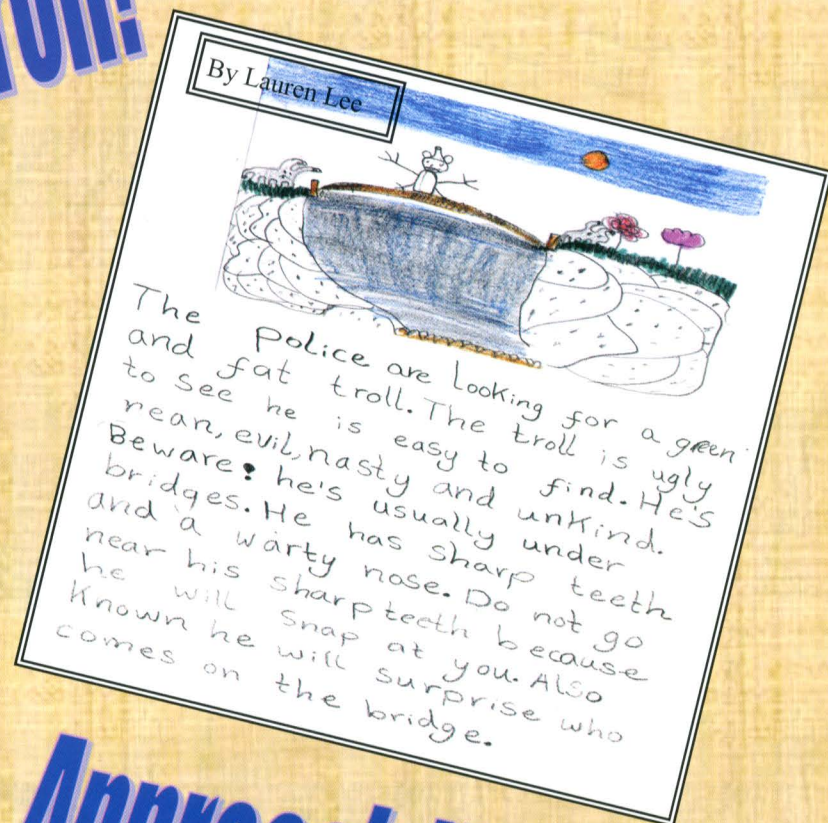 roll!
By Lauren Lee
The Police are Looking for a green
and fat troll. The troll is ugly
to see he is easy to find. He's
mean, evil, nasty and unkind.
Beware! he's usually under
bridges. He has sharp teeth
and a warty nose. Do not go
near his sharp teeth because
he will snap at you. Also
Known he will surprise who
comes on the bridge.